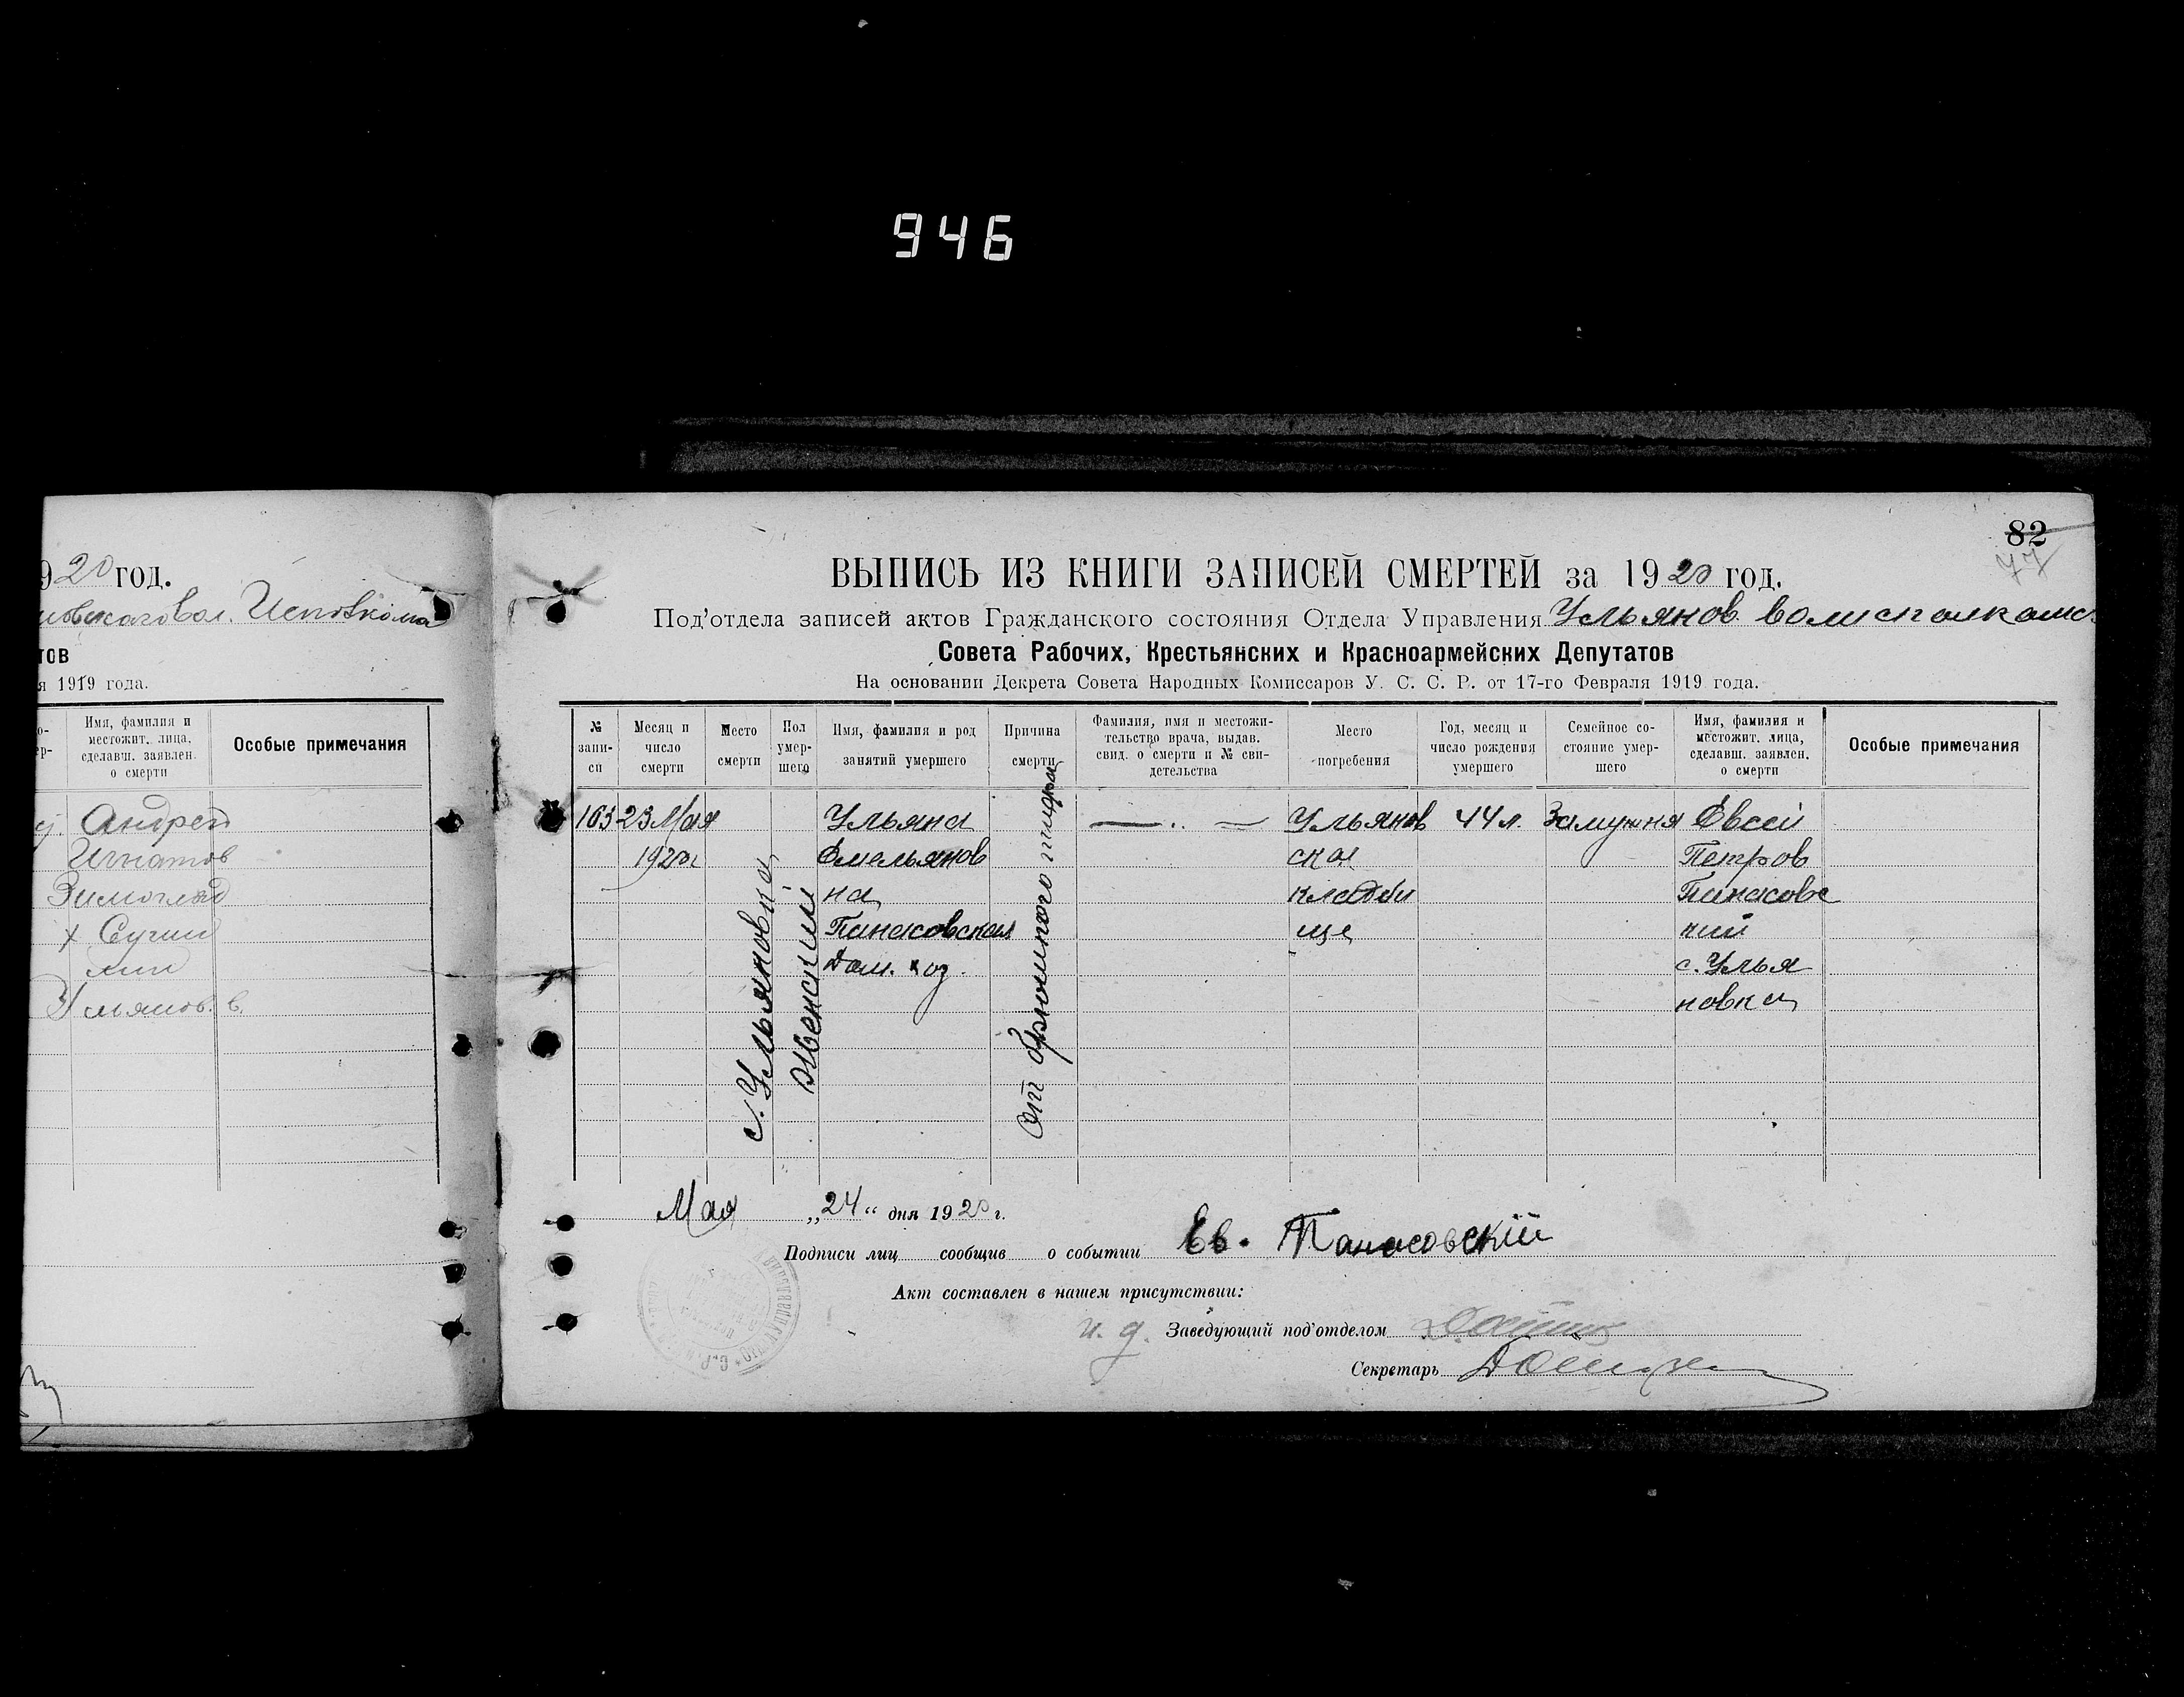 946
920 год.
Исполкома
тов
я 1919 года.
Имя, фамилия и
местожит. лица,
сделавш. заявлен.
о смерти
Особые примечания
Андрей
Игнатов
Зимогляд
х
Ульянов. в.
82
77
ВЫПИСЬ ИЗ КНИГИ ЗАПИСЕЙ СМЕРТЕЙ за 1920 год.
Под'отдела записей актов Гражданского состояния Отдела Управления Ульянов. волисполкомс.
Совета Рабочих, Крестьянских и Красноармейских Депутатов
На основании Декрета Совета Народных Комиссаров У. С. С. Р. от 17-го Февраля 1919 года.
№
запи-
си
Месяц и
число
смерти
Место
смерти
Пол
умер-
шего
Имя, фамилия и род
занятий умершего
Причина
смерти
Фамилия, имя и местожи-
тельство врача, выдав.
свид. о смерти и № сви-
детельства
Место
погребения
Год, месяц и
число рождения
умершего
Семейное со-
стояние умер-
шего
Имя, фамилия и
местожит. лица,
сделавш. заявлен.
о смерти
Особые примечания
163
23 Мая
1920г
с. Ульяновка
женский
Ульяна
Емельянов
на
Панасовская
Дом. хоз.
от брюшного тифа
Ульянов
ска
кладби
ще
44 л.
Замужня
Евсей
Петров
Панасовс
кий
с. Улья
новка
Мая „24“ дня 1920 г.
Подписи лиц сообщив о событии Ев. Панасовскій
Акт составлен в нашем присутствии:
и. д. Заведующий под'отделом
Секретарь